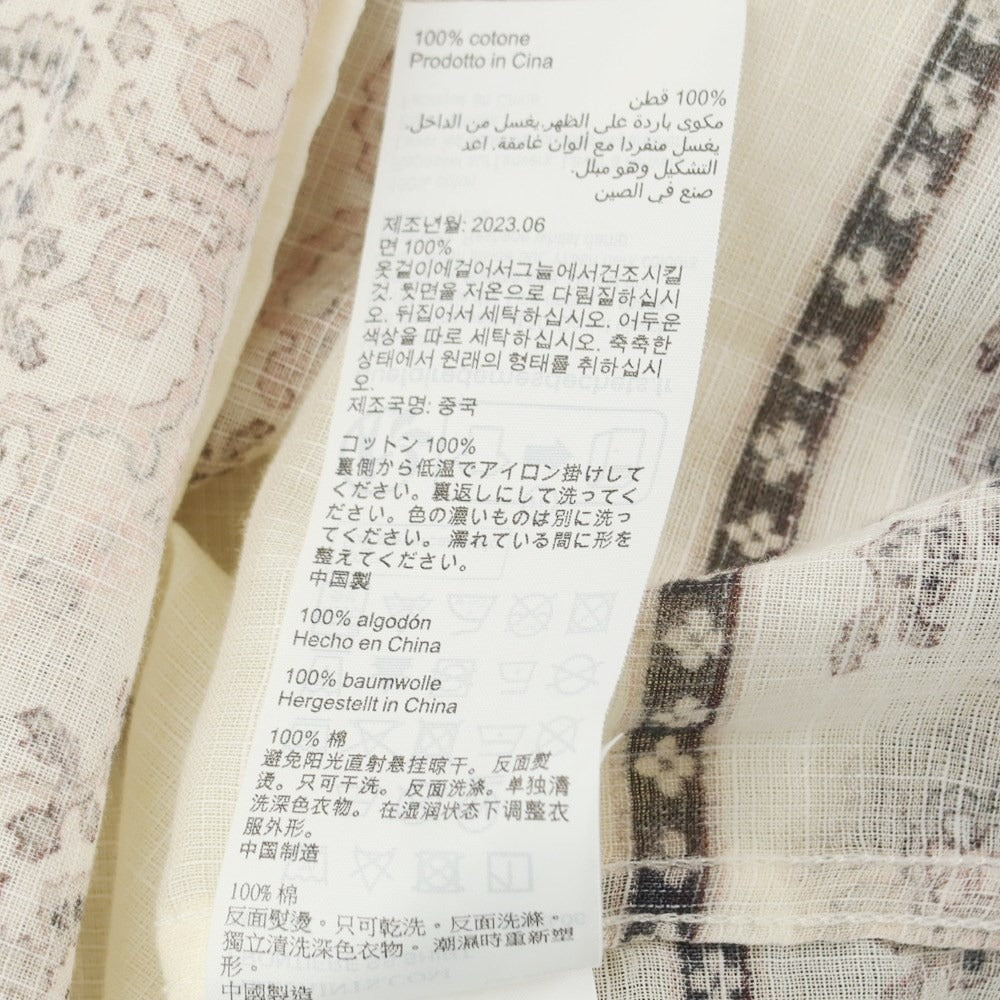 100% cotone
Prodotto in Cina
100% قطن
مكوى باردة على الظهر.يغسل من الداخل.
يغسل منفردا مع ألوان غامقة. اعد
التشكيل وهو مبلل.
صنع في الصين
제조년월: 2023.06
면 100%
옷걸이에걸어서그늘에서건조시킬
것. 뒷면을 저온으로 다림질하십시
오. 뒤집어서 세탁하십시오. 어두운
색상을 따로 세탁하십시오. 축축한
상태에서 원래의 형태를 취하십시
오.
제조국명: 중국
コットン 100%
裏側から低温でアイロン掛けして
ください。裏返しにして洗ってく
ださい。色の濃いものは別に洗っ
てください。 濡れている間に形を
整えてください。
中国製
100% algodón
Hecho en China
100% baumwolle
Hergestellt in China
100% 棉
避免阳光直射悬挂晾干。 反面熨
烫。只可干洗。 反面洗涤。单独清
洗深色衣物。 在湿润状态下调整衣
服外形。
中国制造
100% 棉
反面熨燙。只可乾洗。反面洗滌。
獨立清洗深色衣物。 潮濕時重新塑
形。
中國製造